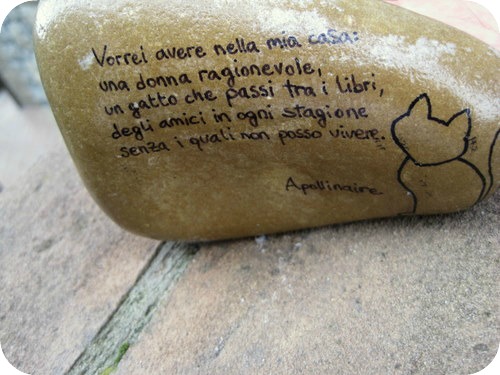 Vorrei avere nella mia casa:
una donna ragionevole,
un gatto che passi tra i libri,
degli amici in ogni stagione
senza i quali non posso vivere.
Apollinaire.